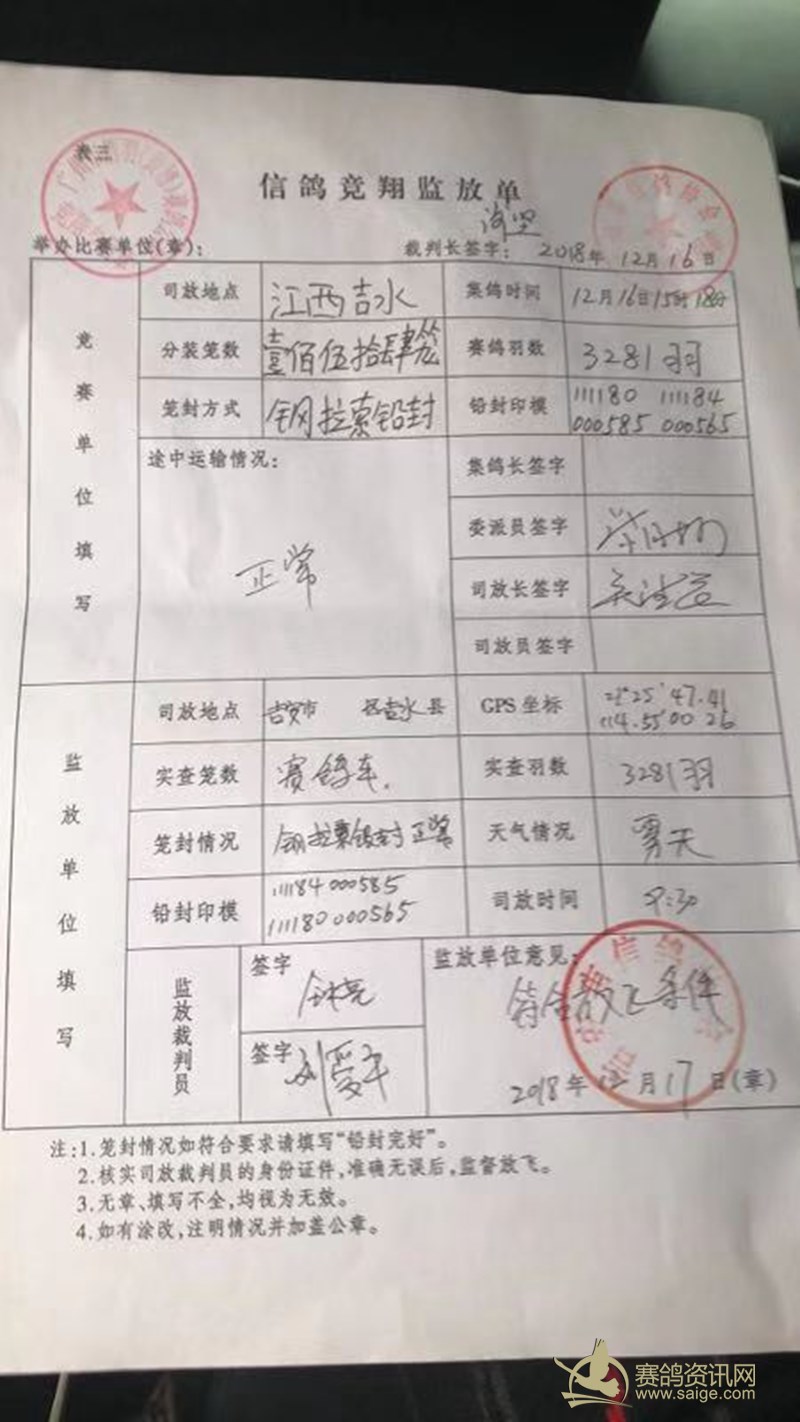 表三
信鸽竞翔监放单
举办比赛单位(章): 裁判长签字: 2018年12月16日
竞赛单位填写
司放地点 江西吉水 集鸽时间 12月16日15时18分
分装笼数 壹佰伍拾肆笼 赛鸽羽数 3281羽
笼封方式 钢拉索铅封 铅封印模 111180 111184
000585 000565
途中运输情况: 正常
集鸽长签字
委派员签字
司放长签字
司放员签字
监放单位填写
司放地点 吉安市 区吉水县 GPS坐标 25'47.41
114.55'00 26
实查笼数 赛鸽车. 实查羽数 3281羽
笼封情况 钢拉索铅封正常 天气情况 雾天
铅封印模 111184 000585
111180 000565
司放时间 9:30
监放裁判员
签字
签字 刘爱平
监放单位意见: 符合放飞条件
2018年12月17日(章)
注:1.笼封情况如符合要求请填写“铅封完好”。
2.核实司放裁判员的身份证件,准确无误后,监督放飞。
3.无章、填写不全,均视为无效。
4.如有涂改,注明情况并加盖公章。
赛鸽资讯网
www.saige.com